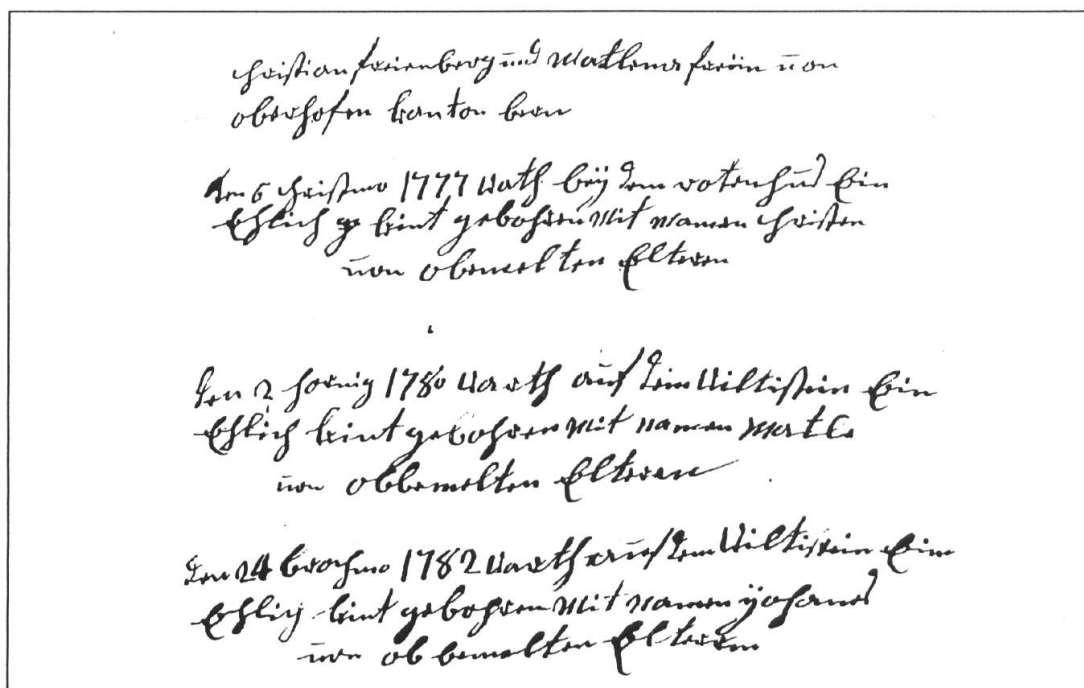 christian freienberg und Matlena freiin von
oberhofen kanton bern
den 6 christmo 1777 wath bey dem rotenhus Ein
Ehlich ge kint gebohren Mit namen christen
von obemelten Elteren
den 2 hornig 1780 warth auf dem Wiltistein Ein
Ehlich kint gebohren Mit namen Matle
von obbemelten Elteren
den 24 brachmo 1782 warth auf dem Wiltistein Ein
Ehlich kint gebohren Mit namen yohanes
von ob bemelten Elteren